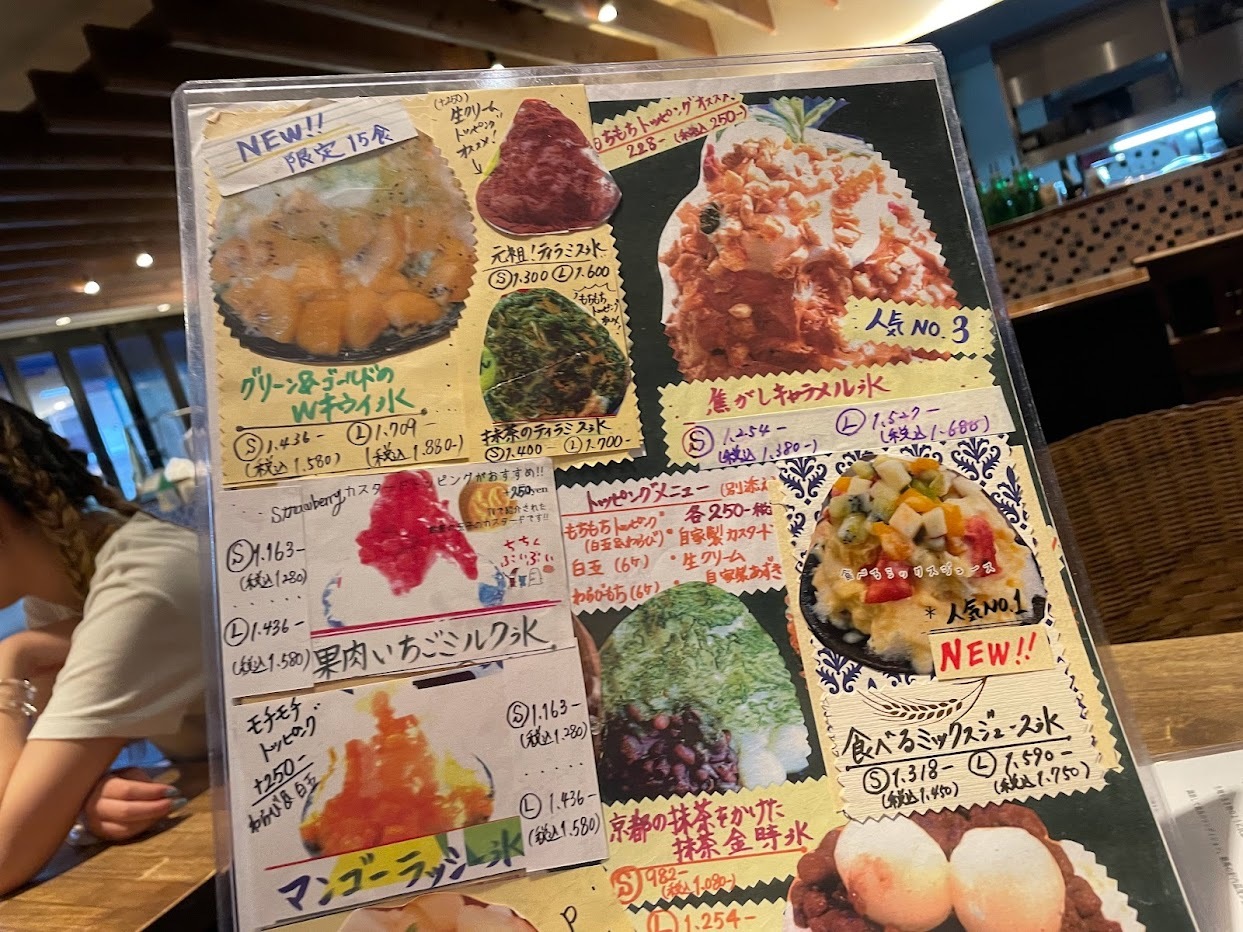 NEW!!
限定15食
グリーン&ゴールドの
Wキウイ氷
Ⓢ1.436-
(税込1.580)
Ⓛ1.709-
(税込1.880-)
(+250)
生クリーム
トッピング
オススメ!
元祖!ティラミス氷
Ⓢ1.300 Ⓛ1.600
もちもち
トッピング
抹茶のティラミス氷
Ⓢ1.400- Ⓛ1.700-
もちもちトッピングオススメ
228-(税込250-)
人気NO.3
焦がしキャラメル氷
Ⓢ1.254-
(税込1.380-)
Ⓛ1.527-
(税込1.680-)
Strawberry カスタードトッピングがおすすめ!!
+250yen
ちちん
ぷいぷい
Ⓢ1.163-
(税込1.280)
Ⓛ1.436-
(税込1.580)
果肉いちごミルク氷
トッピングメニュー(別添え
各250-税込
もちもちトッピング
(白玉&わらび)・自家製カスタード
白玉(6ケ)・生クリーム
わらびもち(6ケ)・自家製あずき
食べるミックスジュース
*人気NO.1
NEW!!
食べるミックスジュース氷
Ⓢ1.318-
(税込1.450)
Ⓛ1.590-
(税込1.750)
モチモチ
トッピング
+250-
わらび&白玉
Ⓢ1.163-
(税込1.280)
Ⓛ1.436-
(税込1.580)
マンゴーラッシー氷
京都の抹茶をかけた
抹茶金時氷
Ⓢ982-
(税込1.080-)
Ⓛ1.254-
P